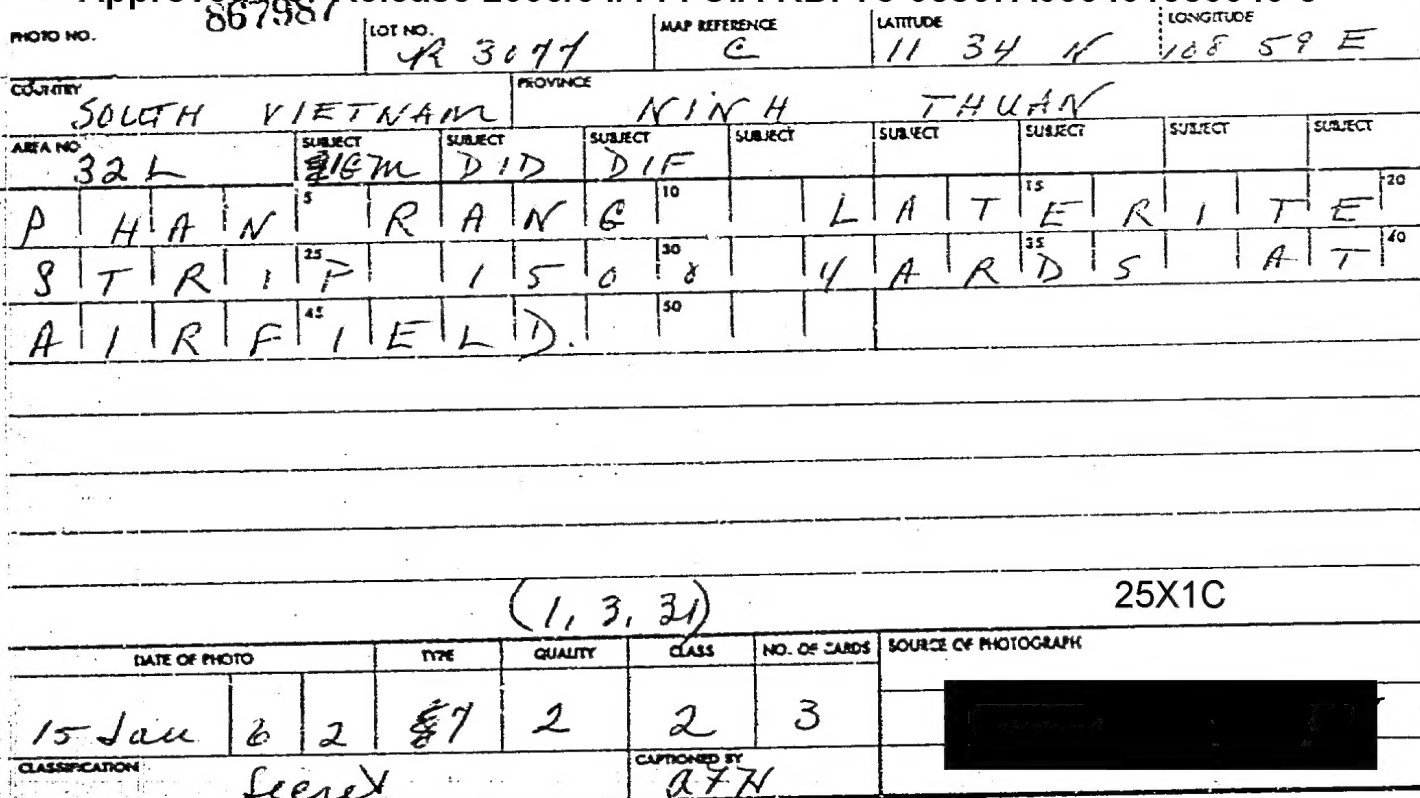 867987
PHOTO NO. LOT NO. R 3077 MAP REFERENCE C LATITUDE 11 34 N LONGITUDE 108 59 E
COUNTRY SOUTH VIETNAM PROVINCE NINH THUAN
AREA NO 32L SUBJECT IGM SUBJECT DID SUBJECT DIF SUBJECT SUBJECT SUBJECT SUBJECT SUBJECT
PHAN RANG LATERITE
5 10 15 20
STRIP 1500 YARDS AT
25 30 35 40
AIRFIELD.
45 50
(1, 3, 31)
25X1C
DATE OF PHOTO TYPE QUALITY CLASS NO. OF CARDS SOURCE OF PHOTOGRAPH
15 Jan 6 2 7 2 2 3
CLASSIFICATION Secret CAPTIONED BY